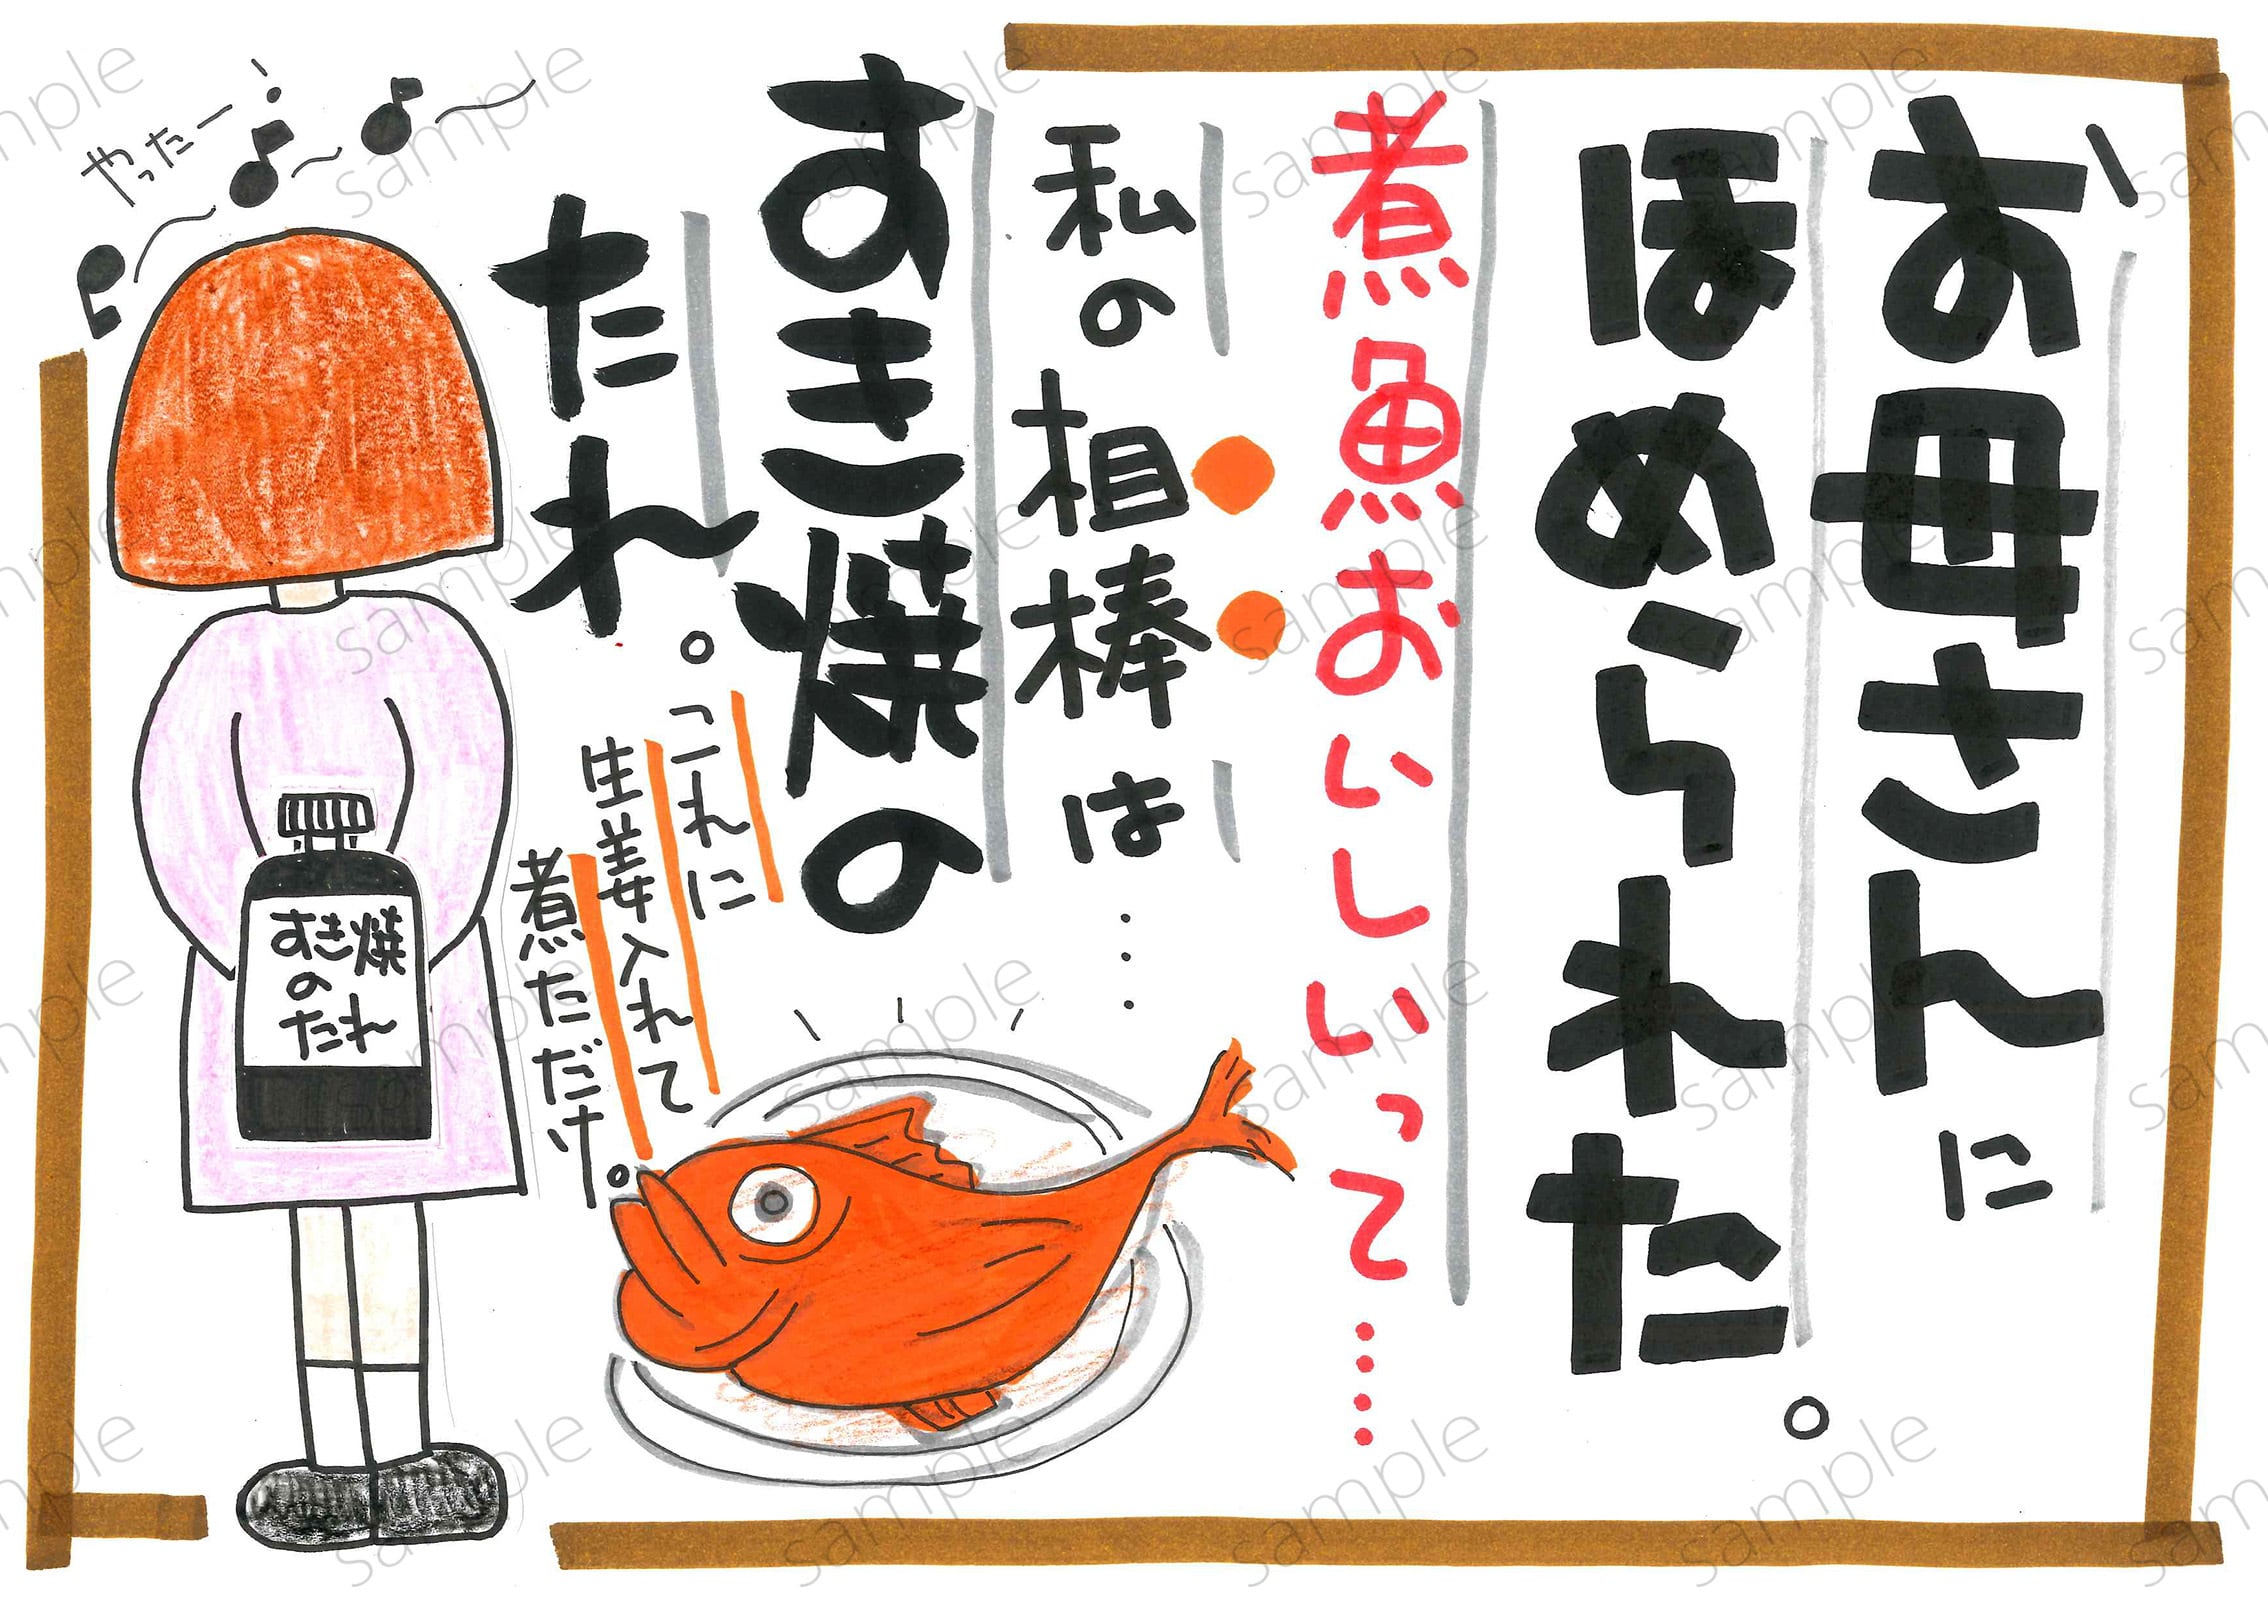 お母さんに
ほめられた。
煮魚おいしいって....
私の相棒は...
すき焼の
たれ。
これに
生姜入れて
煮ただけ。
やったー!
すき焼
の
たれ
sample